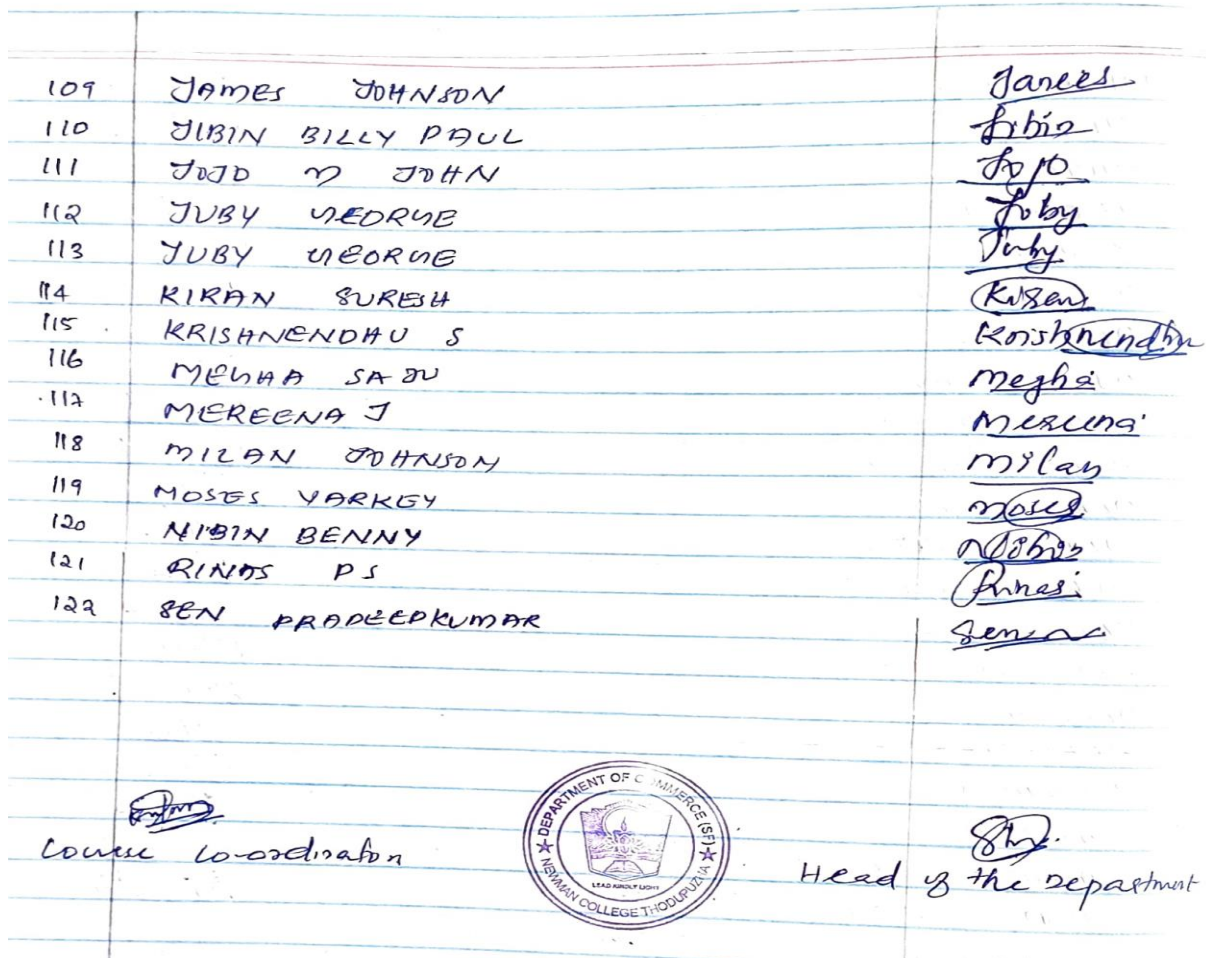 109 JAMES JOHNSON Janees
110 JIBIN BILLY PAUL Jibin
111 JOJO M JOHN Jojo
112 JUBY GEORGE Juby
113 JUBY GEORGE Juby
114 KIRAN SURESH
115 KRISHNENDHU S Krishnendhu
116 MEGHA SAJU Megha
117 MEREENA J Mereena
118 MILAN JOHNSON Milan
119 MOSES VARKEY Moses
120 NIBIN BENNY Nibin
121 RINAS PS Rinas
122 SEN PRADEEPKUMAR Sen
Course Co-ordinator
DEPARTMENT OF COMMERCE (SF)
NEWMAN COLLEGE THODUPUZHA
LEAD KINDLY LIGHT
Head of the Department